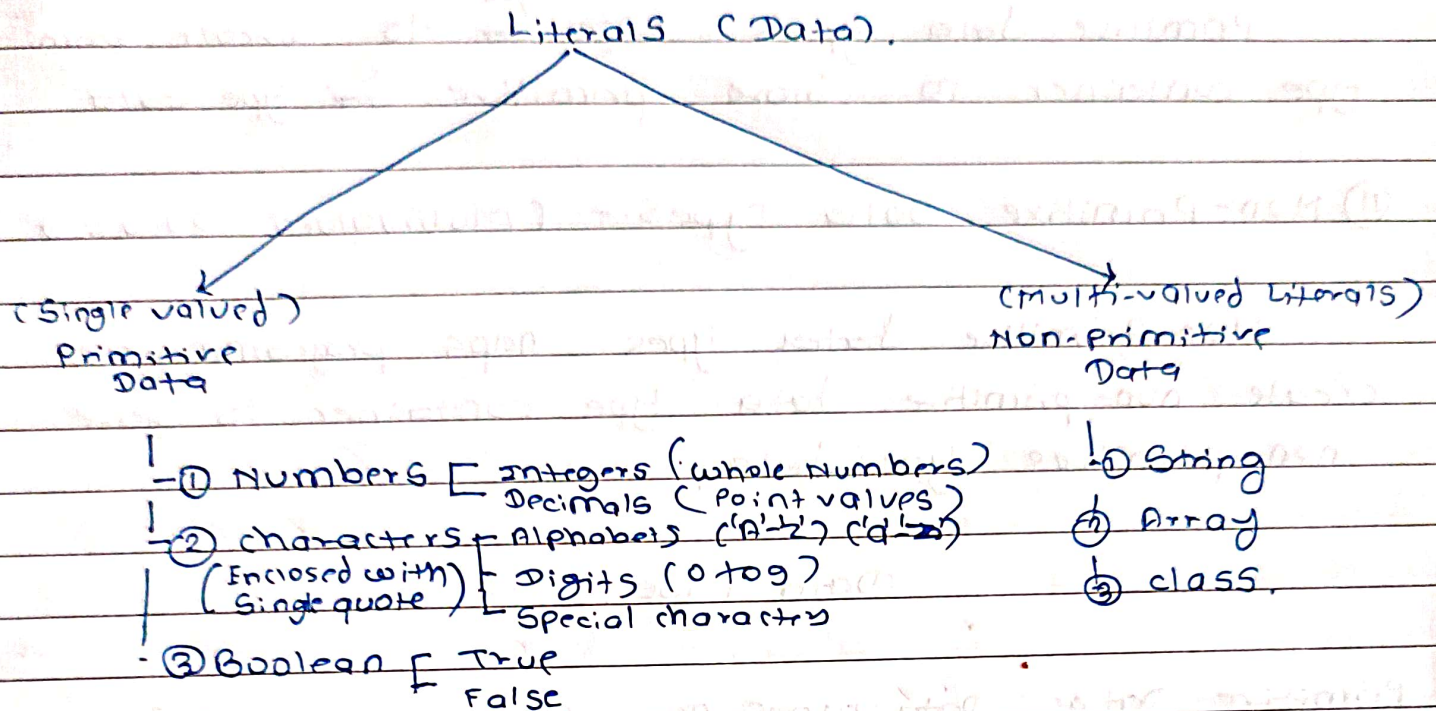 Literals (Data).
(Single valued)
Primitive
Data
(Multi-valued Literals)
Non-Primitive
Data
① Numbers [ Integers (whole Numbers)
Decimals (Point values)
② characters Alphabets ('A'-'z') ('a'-'z')
(Enclosed with Single quote)
Digits (0 to 9)
Special characters
③ Boolean [ True
False
① String
② Array
③ class.